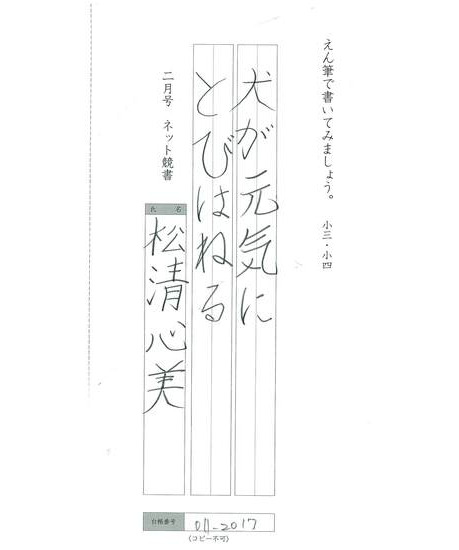 えん筆で書いてみましょう。 小三・小四
犬が元気に
とびはねる
二月号 ネット競書
氏名
松清心美
台帳番号
011-2017
(コピー不可)